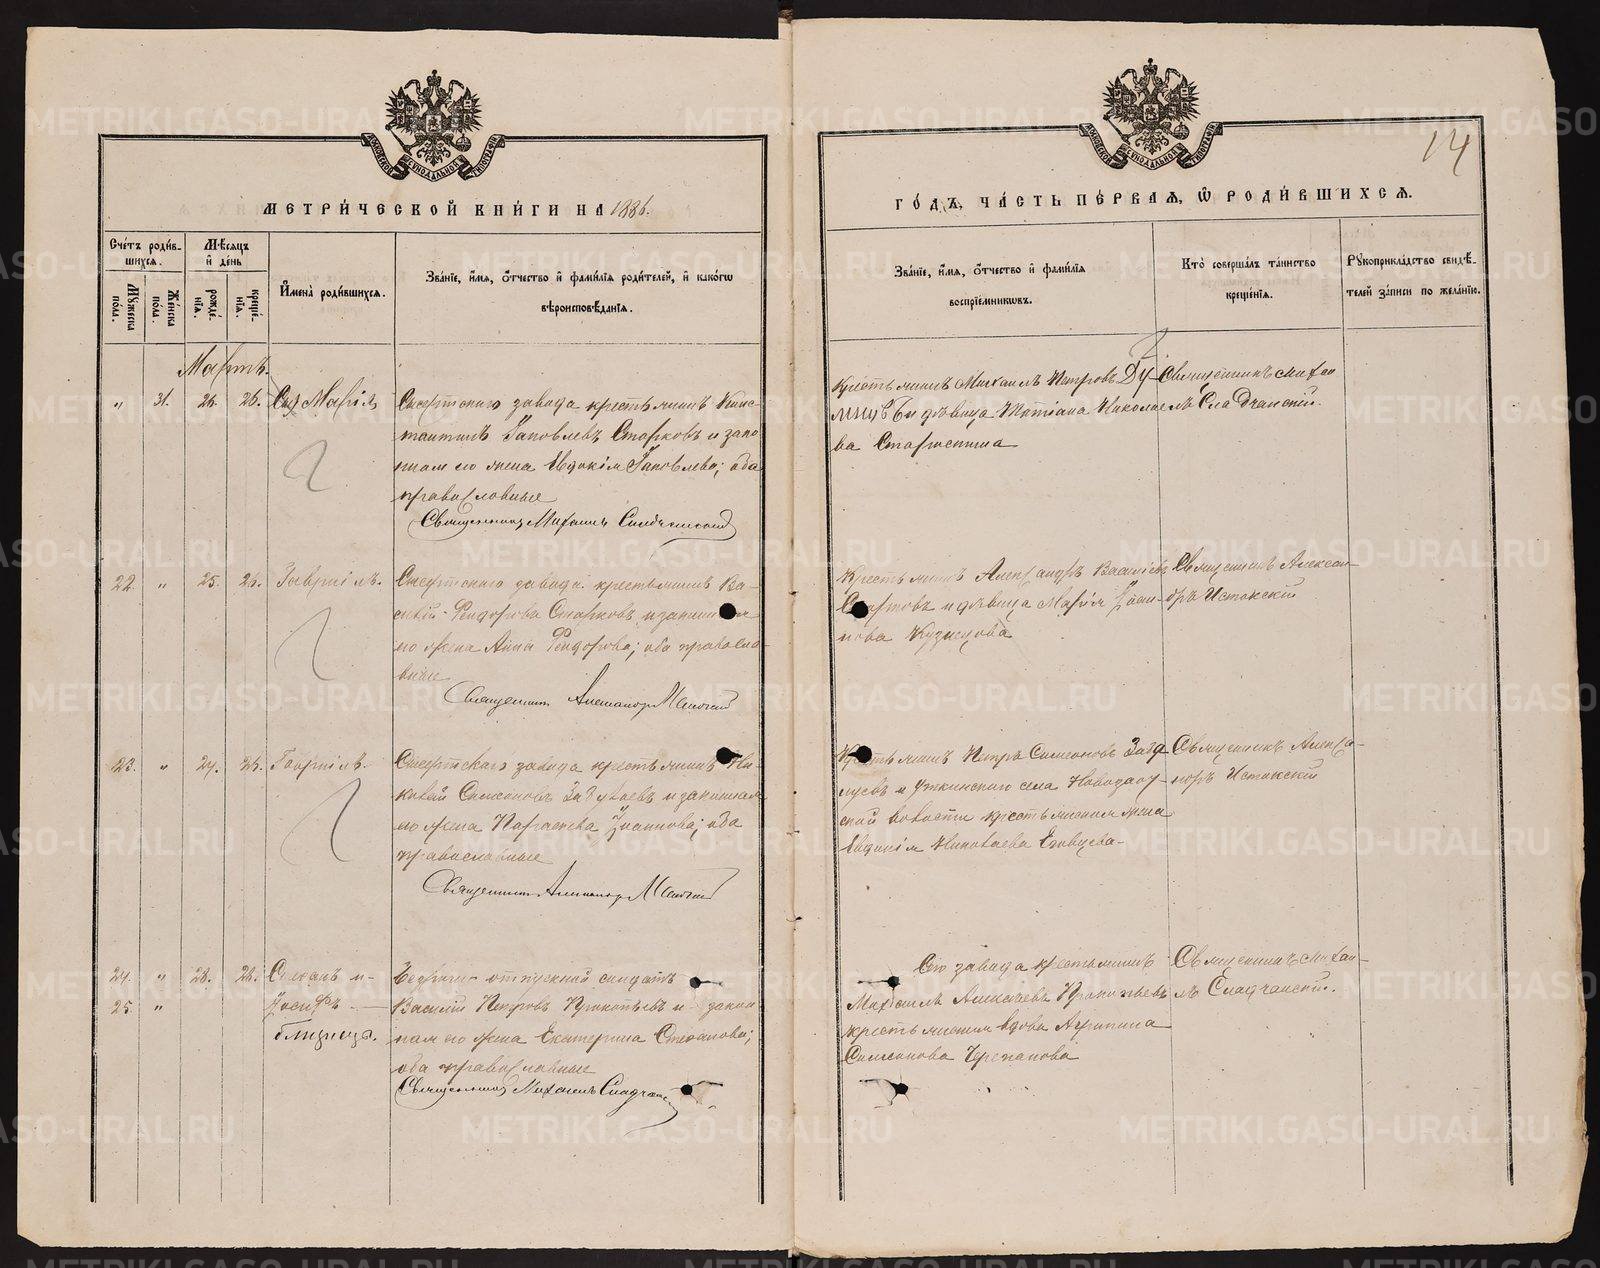 МЕТРИ́ЧЕСКОЙ КНИ́ГИ НА 1886.
Сче́тъ роди́в-
шихсѧ.
Мѣ́сяцъ
и҆ день
Мꙋ́жеска
пола.
Же́нска
пола.
рожде́-
нїѧ.
креще́-
нїѧ.
И҆мена̀ роди́вшихсѧ.
Зва́нїе, и҆́мѧ, ѻ҆́тчество и҆ фами́лїѧ роди́телей, и҆ како́гѡ
вѣроисповѣ́данїѧ.
Мартъ.
" 31. 26. 26. Марія
Сысертского завода крестьянинъ Конс-
тантинъ Іаковлевъ Старковъ и зако
ная его жена Евдокія Іаковлева; оба
православные
Священникъ Михаилъ
22. " 25. 26. Гавріилъ.
Сысертского завода крестьянинъ Ва-
силій Ѳеодоровъ Старковъ и законная
его жена Анна Ѳеодорова; оба правосла-
вные
Священникъ Александръ Истокскій
23. " 24. 26. Гавріилъ.
Сысертского завода крестьянинъ Ни-
колай Симеоновъ и законная
его жена Параскева Іоаннова; оба
православные
Священникъ Александръ Истокскій
24. " 28. 28. Стефанъ и
25. " Іосифъ
близнецы.
отпускной солдатъ
Василій Петровъ Прокопьевъ и закон
ная его жена Екатерина Стефанова;
оба православные
Священникъ Михаилъ
14
ГО́ДЪ, ЧА́СТЬ ПЕ́РВАѦ, Ѡ҆ РОДИ́ВШИХСѦ.
Зва́нїе, и҆́мѧ, ѻ҆́тчество и҆ фами́лїѧ
воспрїе́мникѡвъ.
Кто̀ соверша́лъ та́инство
креще́нїѧ.
Рꙋкоприкла́дство свидѣ́-
телей за́писи по жела́нїю.
Крестьянинъ Михаилъ Петровъ
и дѣвица Татіана Николае
ва Старостина
Священникъ Михаи
лъ
Крестьянинъ Александръ Васильевъ
и дѣвица Марія Іоан-
нова Кузнецова
Священникъ Алексан-
дръ Истокскій
Крестьянинъ Петръ Симеоновъ
и Уткинского села
волости крестьянская жена
Евдокія Николаева
Священникъ Алекса-
ндръ Истокскій
Сего завода крестьянинъ
Михаилъ Алексѣевъ Прокопьевъ
крестьянская вдова Агрипина
Симеонова Черепанова
Священникъ Михаи-
лъ
METRIKI.GASO-URAL.RU